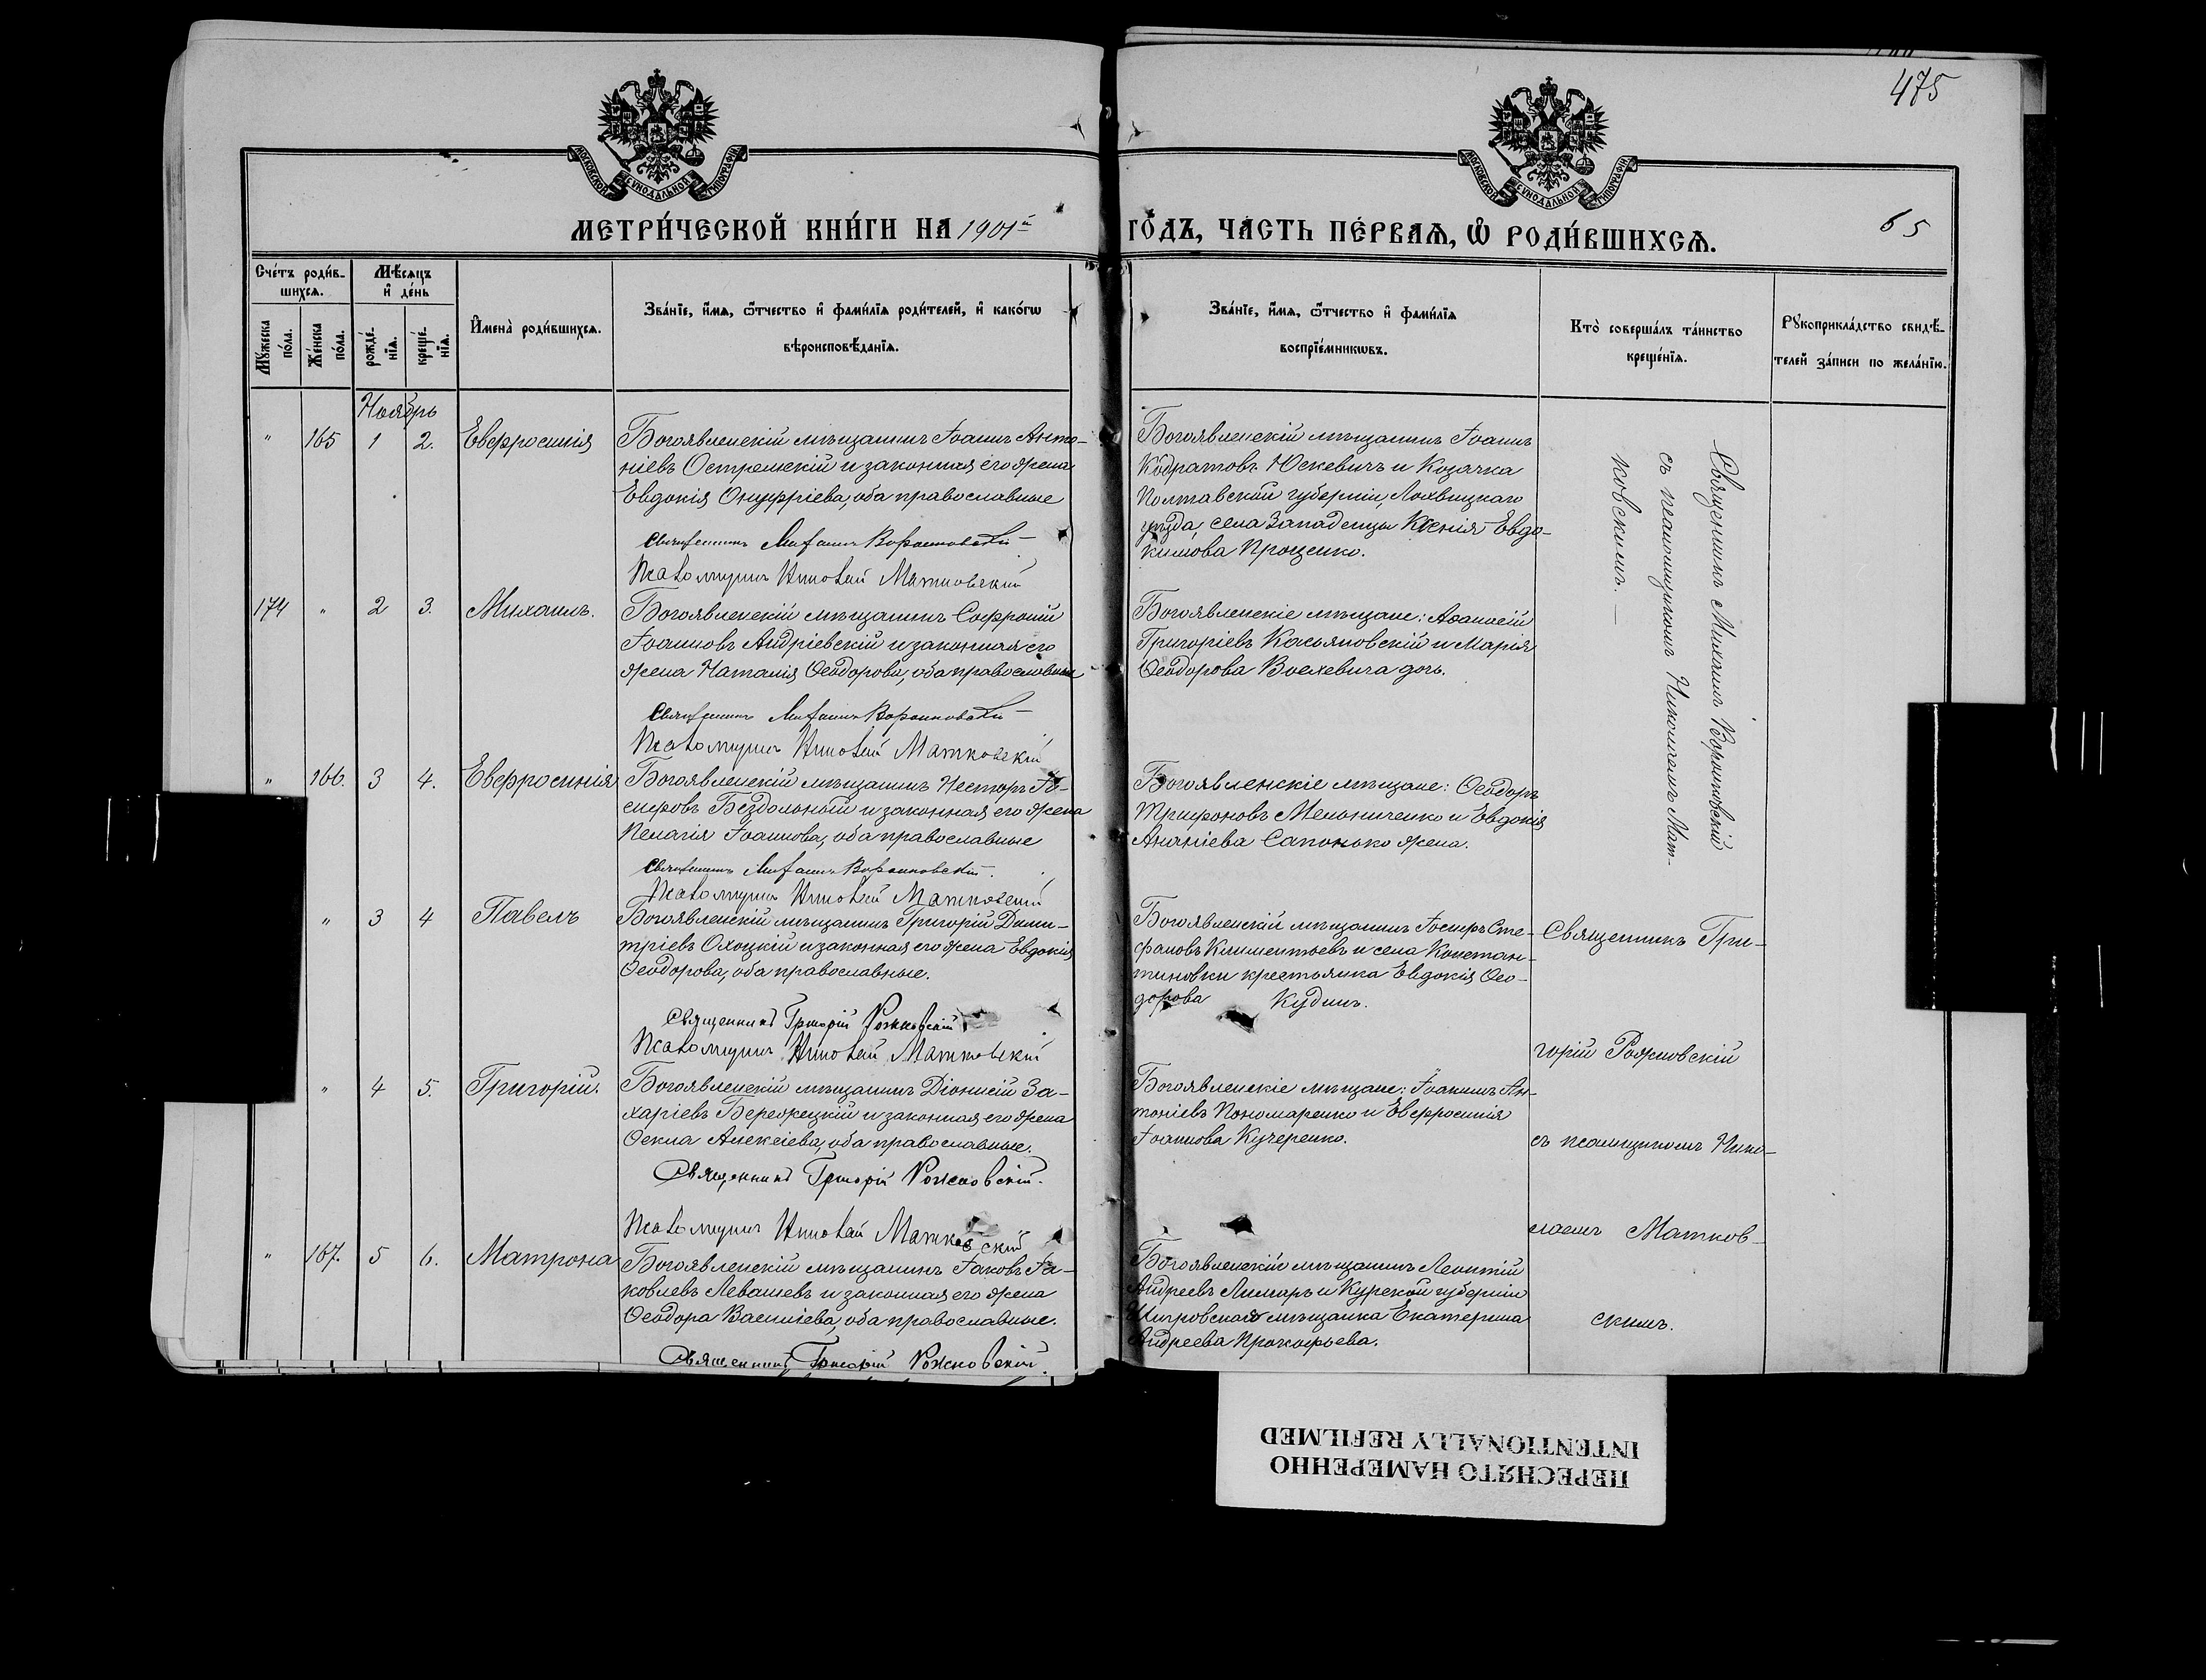 475
МОСКОВСКОЙ СѴНОДАЛЬНОЙ ТИПОГРАФІИ
МОСКОВСКОЙ СѴНОДАЛЬНОЙ ТИПОГРАФІИ
МЕТРИ́ЧЕСКОЙ КНИ́ГИ НА 1901й ГО́ДЪ, ЧА́СТЬ ПЕ́РВАѦ, Ѡ҆ РОДИ́ВШИХСѦ.
65
Сче́тъ роди́в-
шихсѧ.
Мꙋ́жеска
по́ла.
Же́нска
по́ла.
Мѣ́сѧцъ
и҆ де́нь
рожде́-
нїѧ.
креще́-
нїѧ.
И҆мена̀ роди́вшихсѧ.
Зва́нїе, и҆́мѧ, ѻ҆́тчество и҆ фами́лїѧ роди́телей, и҆ како́гѡ
вѣроисповѣ́данїѧ.
Зва́нїе, и҆́мѧ, ѻ҆́тчество и҆ фами́лїѧ
воспрїе́мникѡвъ.
Кто̀ соверша́лъ та́инство
креще́нїѧ.
Рꙋкоприкла́дство свидѣ́-
телей за́писи по жела́нїю.
Ноябрь
" 165 1 2. Евфросинія
Богоявленскій мѣщанинъ Іоаннъ Анто-
ніевъ Островскій и законная его жена
Евдокія Онуфріева, оба православные
Священникъ Михаилъ Воронковскій
Псаломщикъ Николай Матковскій
Богоявленскій мѣщанинъ Іоаннъ
Кодратовъ Юскевичъ и Козачка
Полтавской губерніи, Лохвицкаго
уѣзда, села Западенцы Ксенія Евдо-
кимова Проценко.
Священникъ Михаилъ Воронковскій
съ псаломщикомъ Николаемъ Мат-
ковскимъ. —
174 " 2 3. Михаилъ.
Богоявленскій мѣщанинъ Софроній
Іоанновъ Андріевскій и законная его
жена Наталія Ѳеодорова, оба православные
Священникъ Михаилъ Воронковскій
Псаломщикъ Николай Матковскій
Богоявленскіе мѣщане: Аѳанасій
Григоріевъ Касьяновскій и Марія
Ѳеодорова Воехевича дочь.
" 166. 3 4. Евфросинія
Богоявленскій мѣщанинъ Несторъ Іо-
сифовъ Бездольный и законная его жена
Пелагія Іоаннова, оба православные
Священникъ Михаилъ Воронковскій.
Псаломщикъ Николай Матковскій
Богоявленскіе мѣщане: Ѳеодоръ
Трифоновъ Мельниченко и Евдокія
Ананіева Сапонько жена.
" 3 4 Павелъ
Богоявленскій мѣщанинъ Григорій Дими-
тріевъ Охоцкій и законная его жена Евдокія
Ѳеодорова, оба православные.
Священникъ Григорій Рожновскій
Псаломщикъ Николай Матковскій
Богоявленскій мѣщанинъ Іосифъ Сте-
фановъ Климентьевъ и села Констан-
тиновки крестьянка Евдокія Ѳео-
дорова Кудинъ.
Священникъ Гри-
горій Рожновскій
съ псаломщикомъ Нико-
лаемъ Матков-
скимъ.
" 4 5. Григорій.
Богоявленскій мѣщанинъ Діонисій За-
харіевъ Бережецкій и законная его жена
Ѳекла Алексіева, оба православные.
Священникъ Григорій Рожновскій.
Псаломщикъ Николай Матковскій
Богоявленскіе мѣщане: Іоакимъ Ан-
тоніевъ Пономаренко и Евфросинія
Іоаннова Кучеренко.
" 167. 5 6. Матрона
Богоявленскій мѣщанинъ Іаковъ Іа-
ковлевъ Левашевъ и законная его жена
Ѳеодора Василіева, оба православные.
Священникъ Григорій Рожновскій.
Богоявленскій мѣщанинъ Леонтій
Андреевъ Лимаръ и Курской губерніи
Щигровская мѣщанка Екатерина
Андреева Прокофьева.
ПЕРЕСНЯТО НАМЕРЕННО
INTENTIONALLY REFILMED